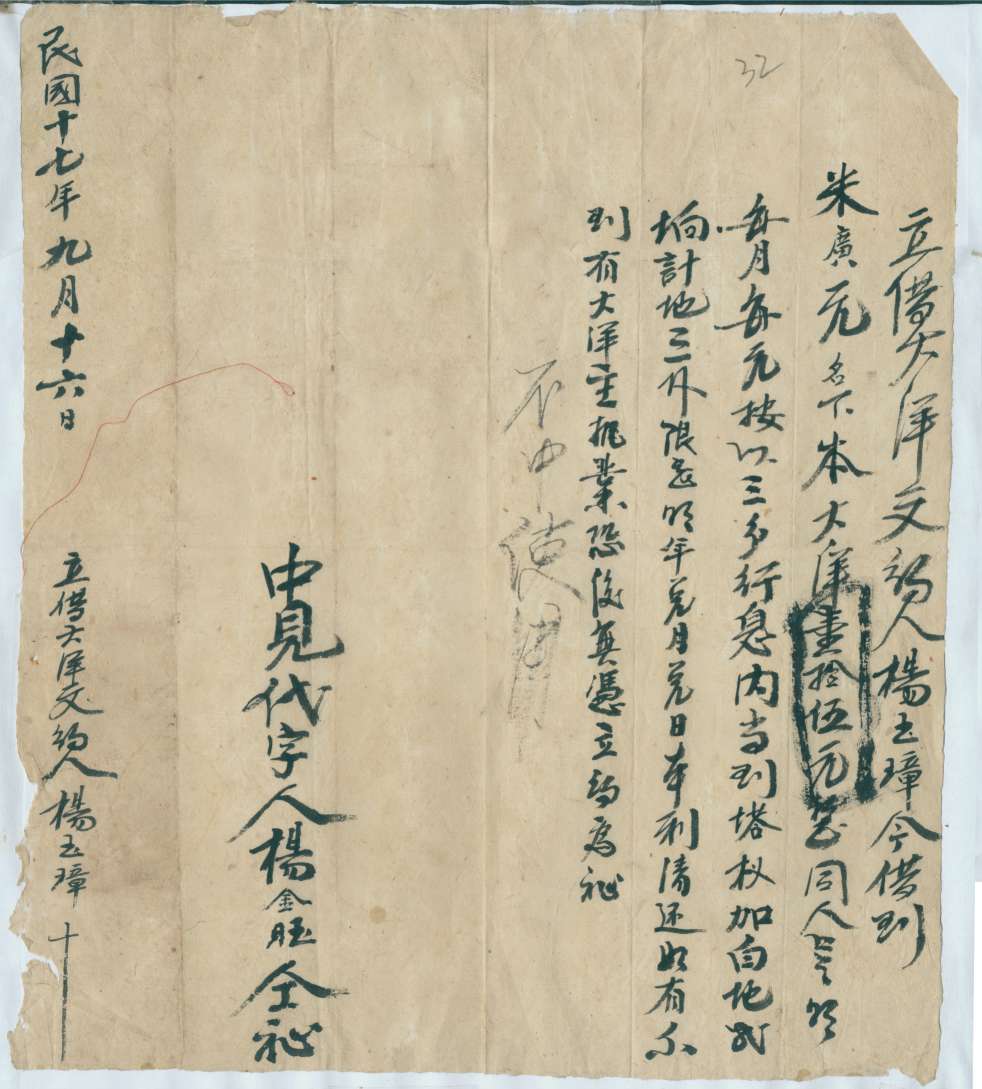 32
立借大洋文約人楊玉璋今借到
米廣元名下本大洋壹拾伍元整同人言明
每月每元按以三分行息内当到塔权加白地
垧計地三外限至明年兑月兑日本利清还如有不
到有大洋主抵業恐後無憑立約為証
不中使用
中見代字人楊金旺仝証
立借大洋文約人楊玉璋十
民國十七年九月十六日